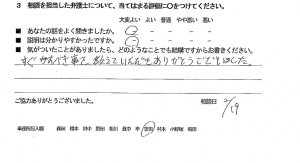 3 相談を担当した弁護士について、当てはまる評価に○をつけてください。
大変よい よい 普通 やや悪い 悪い
・ あなたの話をよく聞きましたか。
・ 説明は分かりやすかったですか。
・ 気がついたことがありましたら、どのようなことでも結構ですからお書きください。
教えていただきありがとうございました。
ご協力ありがとうございました。
相談日 2/19
事務局記入欄